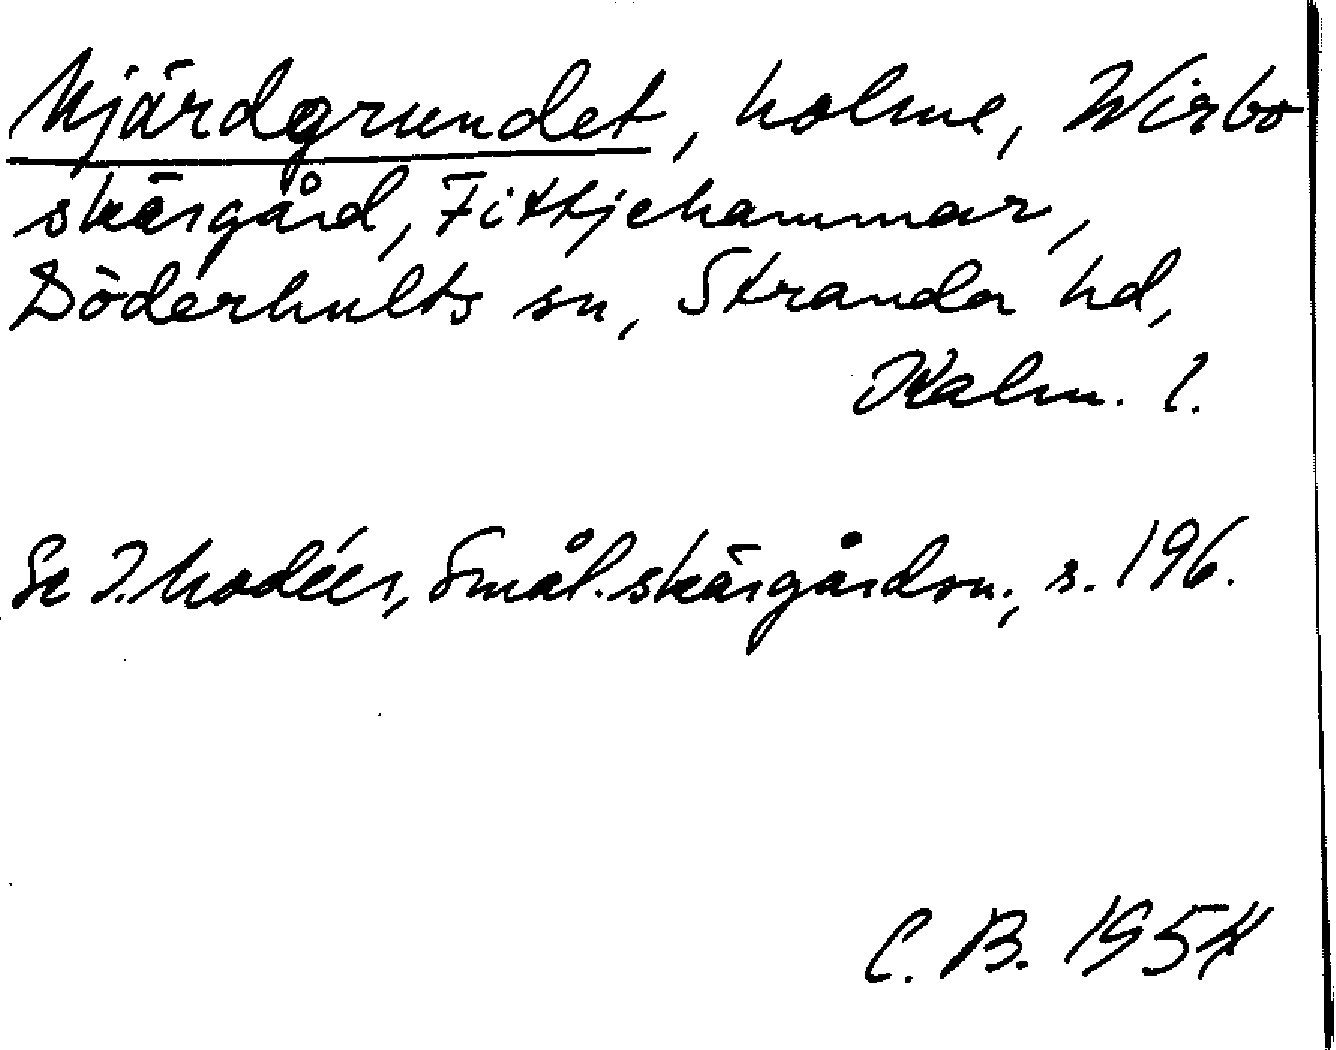 Mjärdgrundet, holme, Wirbo
skärgård, Fittjehammar,
Döderhults sn, Stranda hd,
Kalm. l.
Se I. Modéer, Smål. skärgårdsn., s. 196.
C. B. 1954